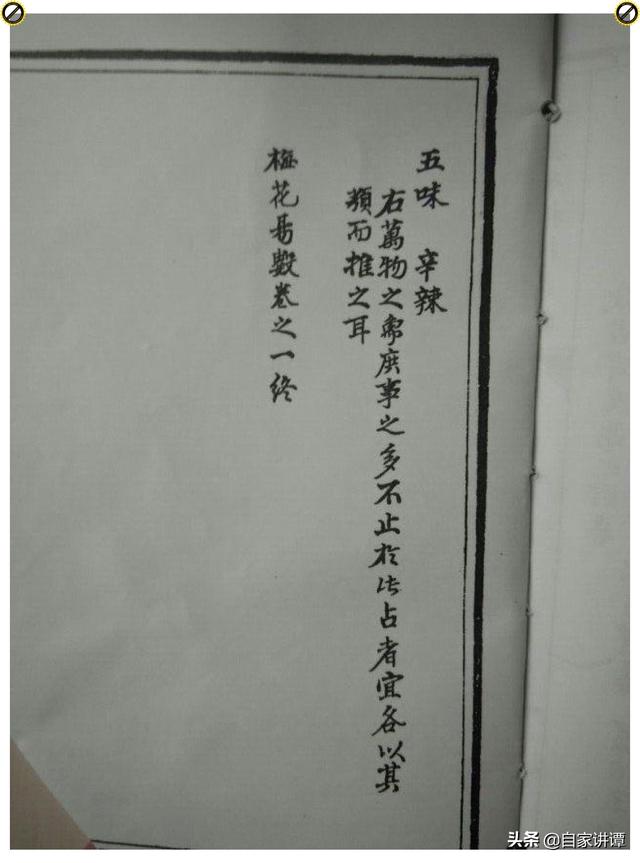 五味　辛辣
右萬物之象庶事之多不止於此占者宜各以其
類而推之耳
梅花易數卷之一終
头条 @自家讲谭